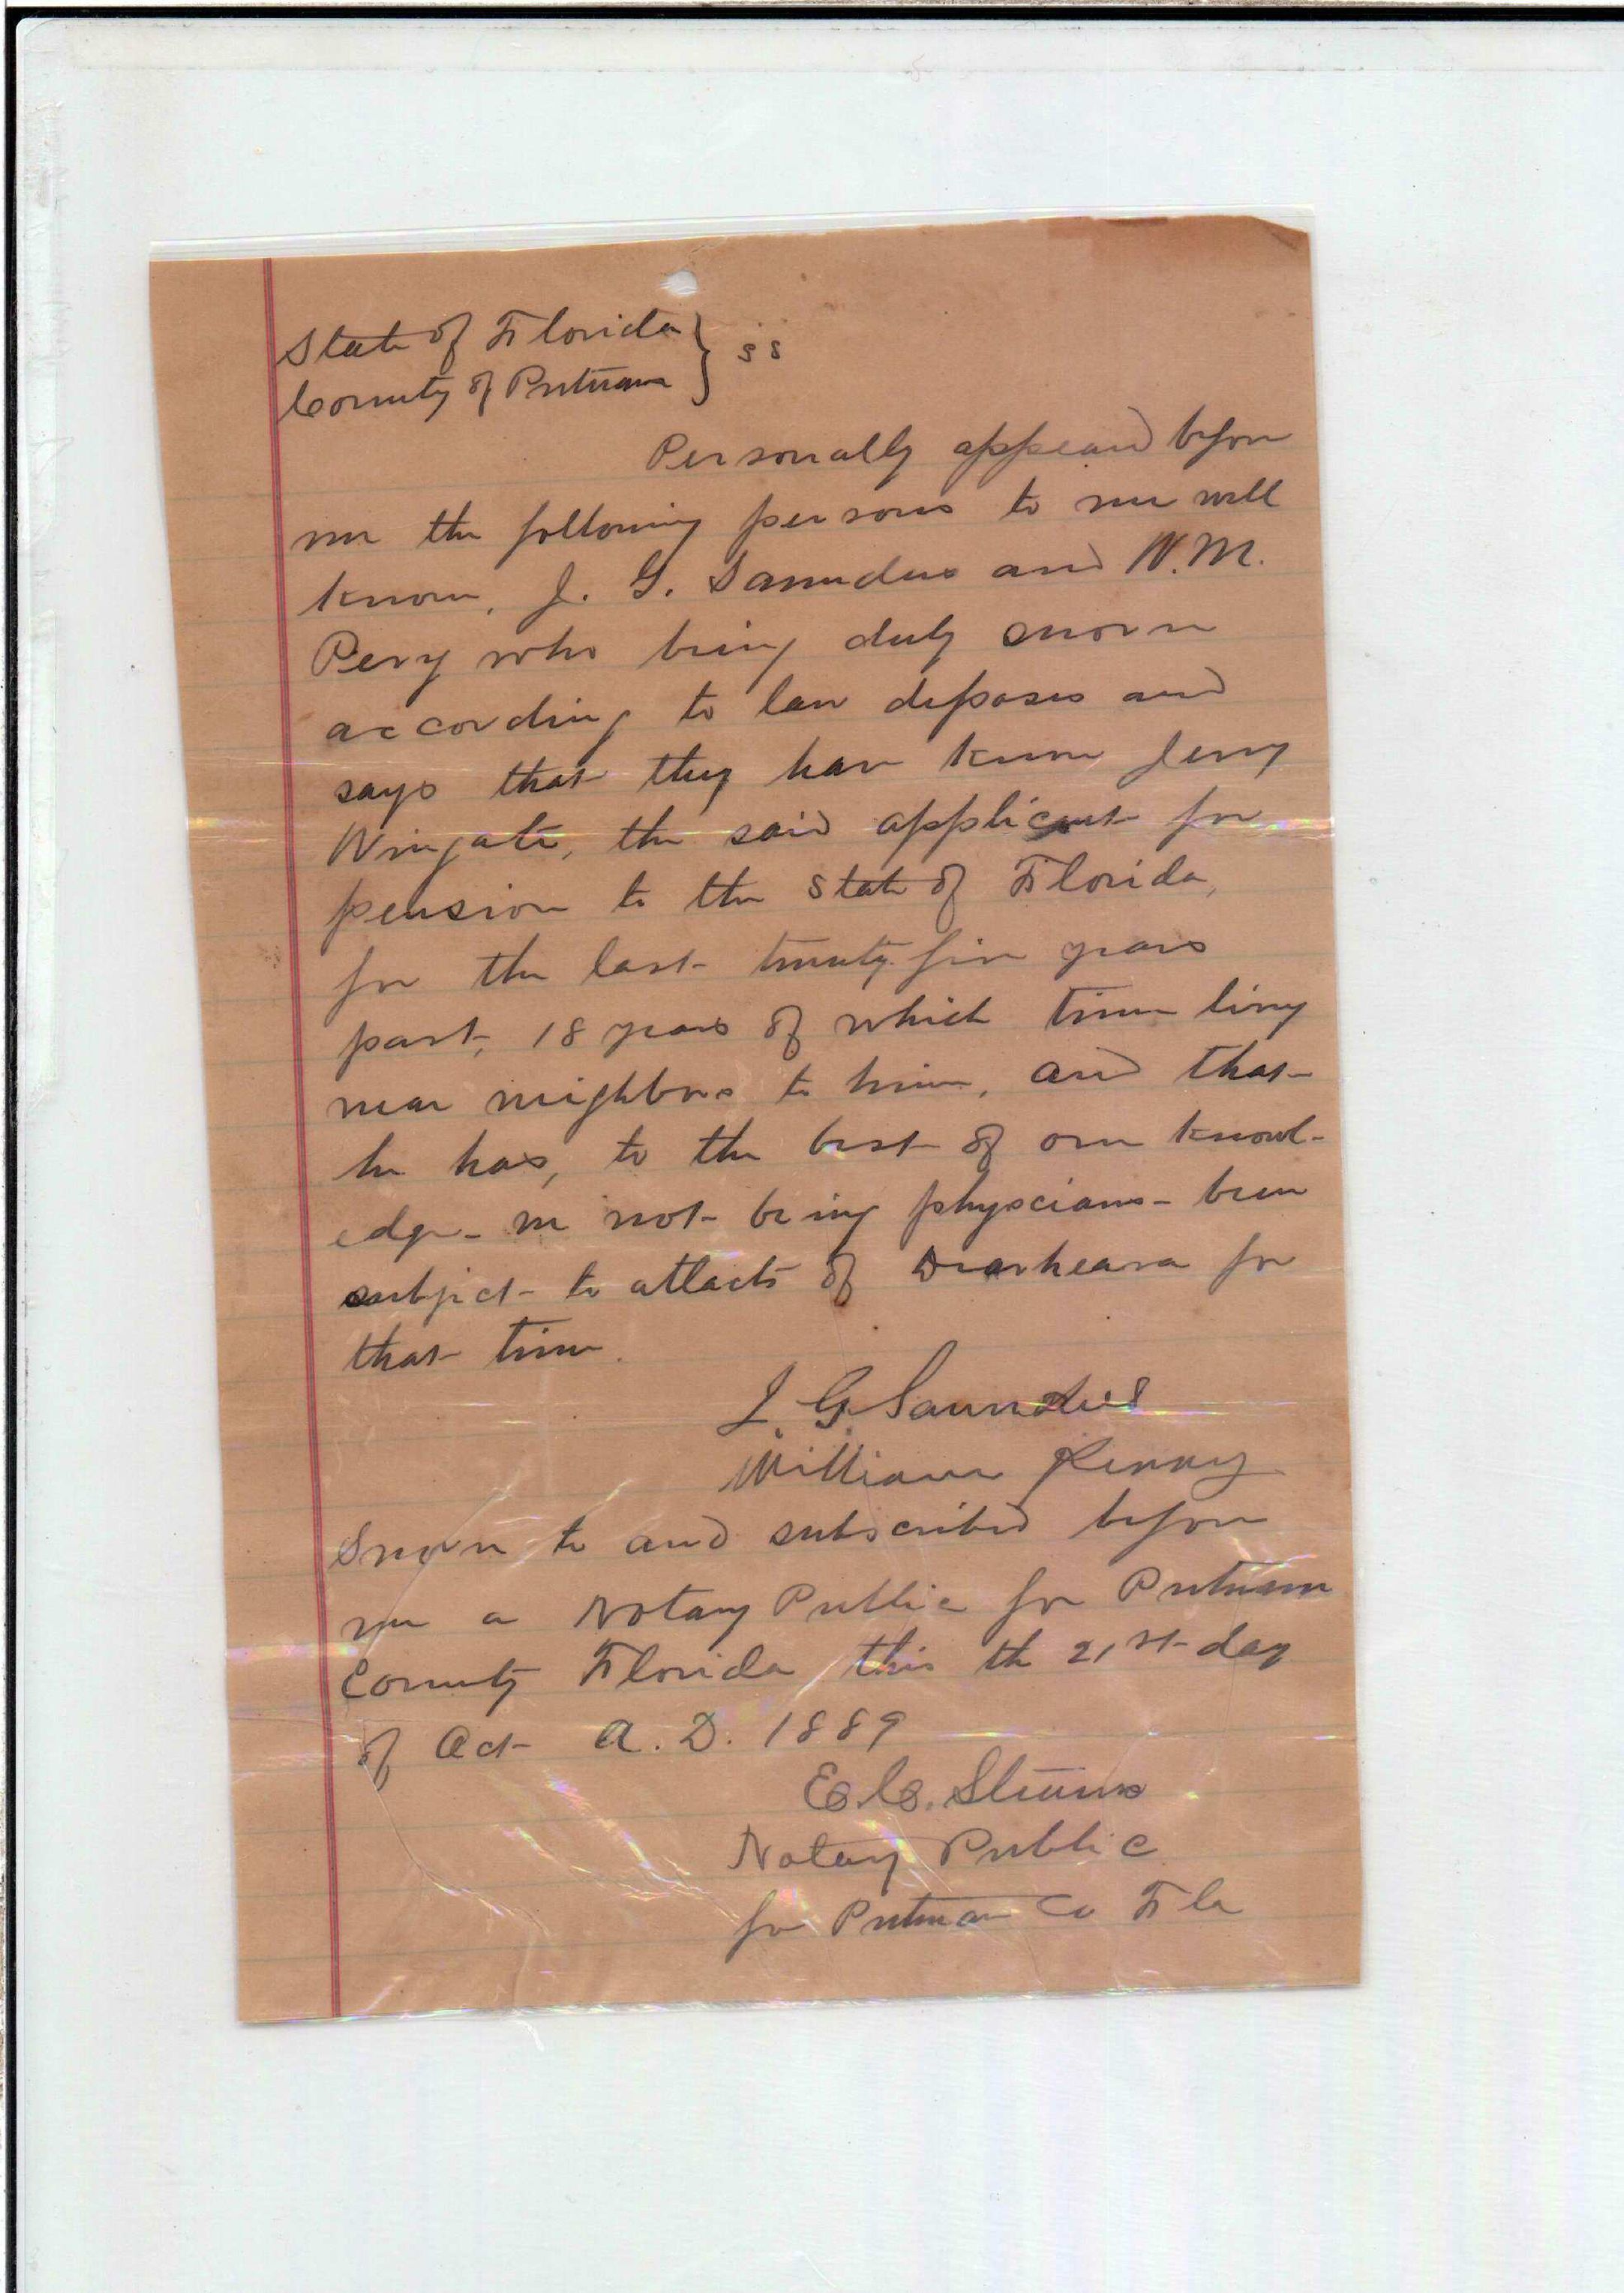 State of Florida } ss
County of Putnam
Personally appeard before
me the following persons to me well
know, J. G. Saunders and W. M.
Pery who being duly sworn
according to law deposes and
says that they have know Jerry
Wingate, the said applicant for
pension to the State of Florida,
for the last twenty five years
past, 18 years of which time living
near neighbors to him, and that
he has, to the best of our knowl-
edge - we not being physcians - been
subject to attacts of for
that time.
J. G. Saunders
William
Sworn to and subscribed before
me a Notary Public for Putnam
County Florida this the 21st day
of Oct A. D. 1889
E. C.
Notary Public
for Putnam Co Fla